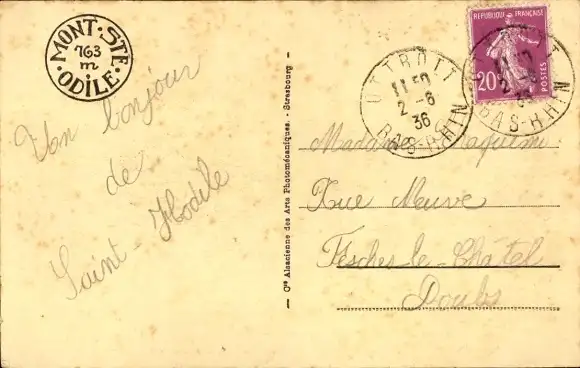 MONT · STE ·
763
m
· ODILE ·
Von bonjour
de
Saint Hodile
— Cie Alsacienne des Arts Photomécaniques. - Strasbourg —
OTTROTT
11 50
2 - 6
36
BAS-RHIN
REPUBLIQUE FRANÇAISE
20c
POSTES
BAS-RHIN
Madame
Rue Meuve
Fesches-le-Châtel
Doubs